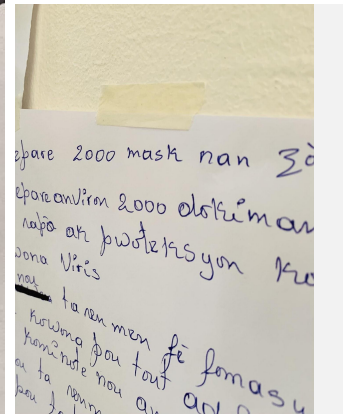 epare 2000 mask nan zò
epare anviron 2000 dokiman
rapò ak pwoteksyon ko
wona Viris
ta renmen fè fomasy
kowong pou tout
kominote nou an
ou ta renm
pou